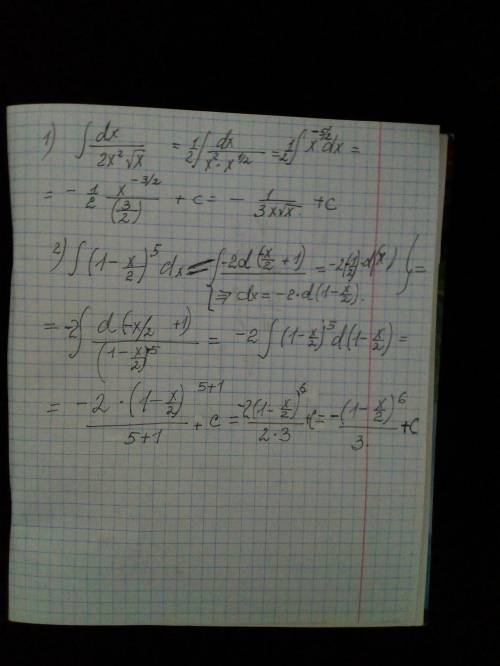 1) ∫ dx / (2x²√x) = 1/2 ∫ dx / (x² · x^(1/2)) = 1/2 ∫ x^(-5/2) dx =
= - 1/2 x^(-3/2) / (3/2) + c = - 1 / (3x√x) + C
2) ∫ (1 - x/2)^5 dx = { -2d(-x/2 + 1) = -2(-1/2) · d(x) } =
⇒ dx = -2 · d(1 - x/2).
= -2 ∫ d(-x/2 + 1) / (1 - x/2)^-5 = -2 ∫ (1 - x/2)^5 d(1 - x/2) =
= -2 · (1 - x/2)^(5+1) / (5+1) + C = -2(1 - x/2)^6 / (2·3) + C = -(1 - x/2)^6 / 3 + C